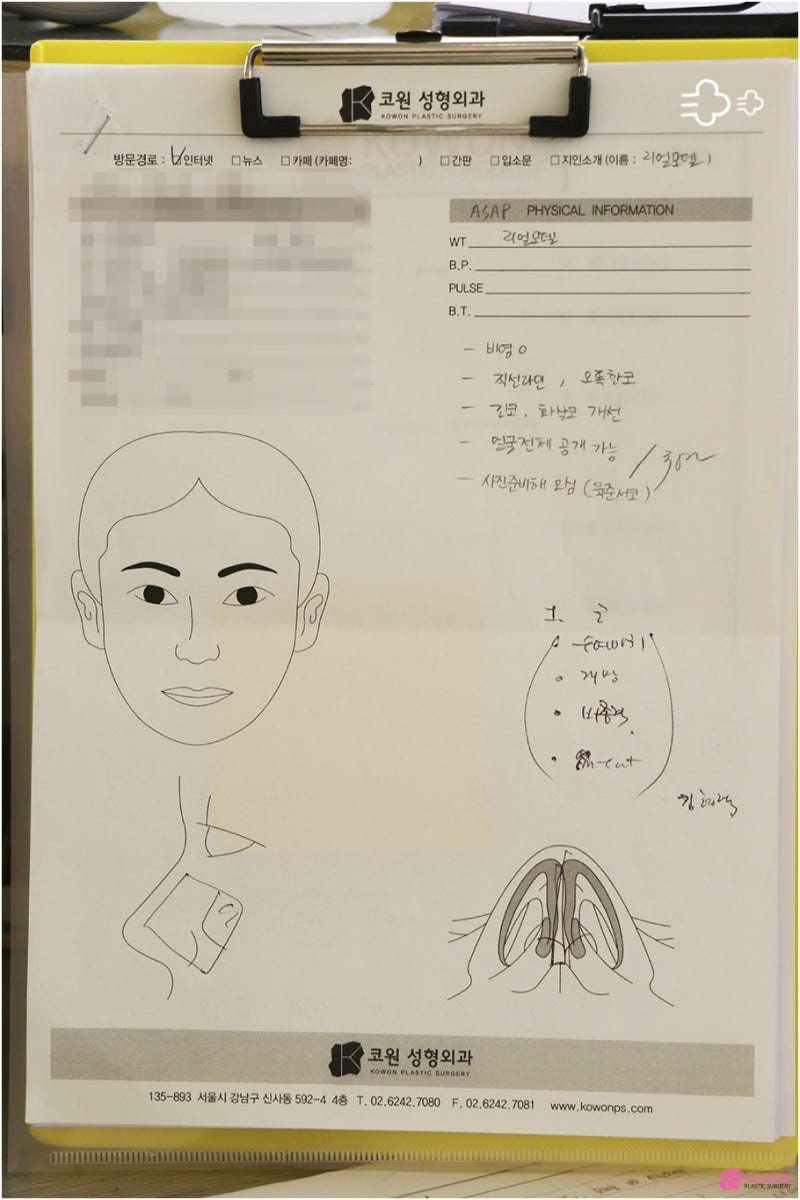 코원 성형외과
KOWON PLASTIC SURGERY
방문경로 : ☑인터넷 □뉴스 □카페 (카페명: ) □간판 □입소문 □지인소개 (이름 : 리얼모델 )
ASAP PHYSICAL INFORMATION
WT 리얼모델
B.P.
PULSE
B.T.
- 비염 O
- 직선라인, 오똑한코
- 긴코, 화살코 개선
- 얼굴전체 공개 가능
- 사진준비해 오심 (육준서코)
코원 성형외과
KOWON PLASTIC SURGERY
135-893 서울시 강남구 신사동 592-4 4층 T. 02.6242.7080 F. 02.6242.7081 www.kowonps.com
PLASTIC SURGERY